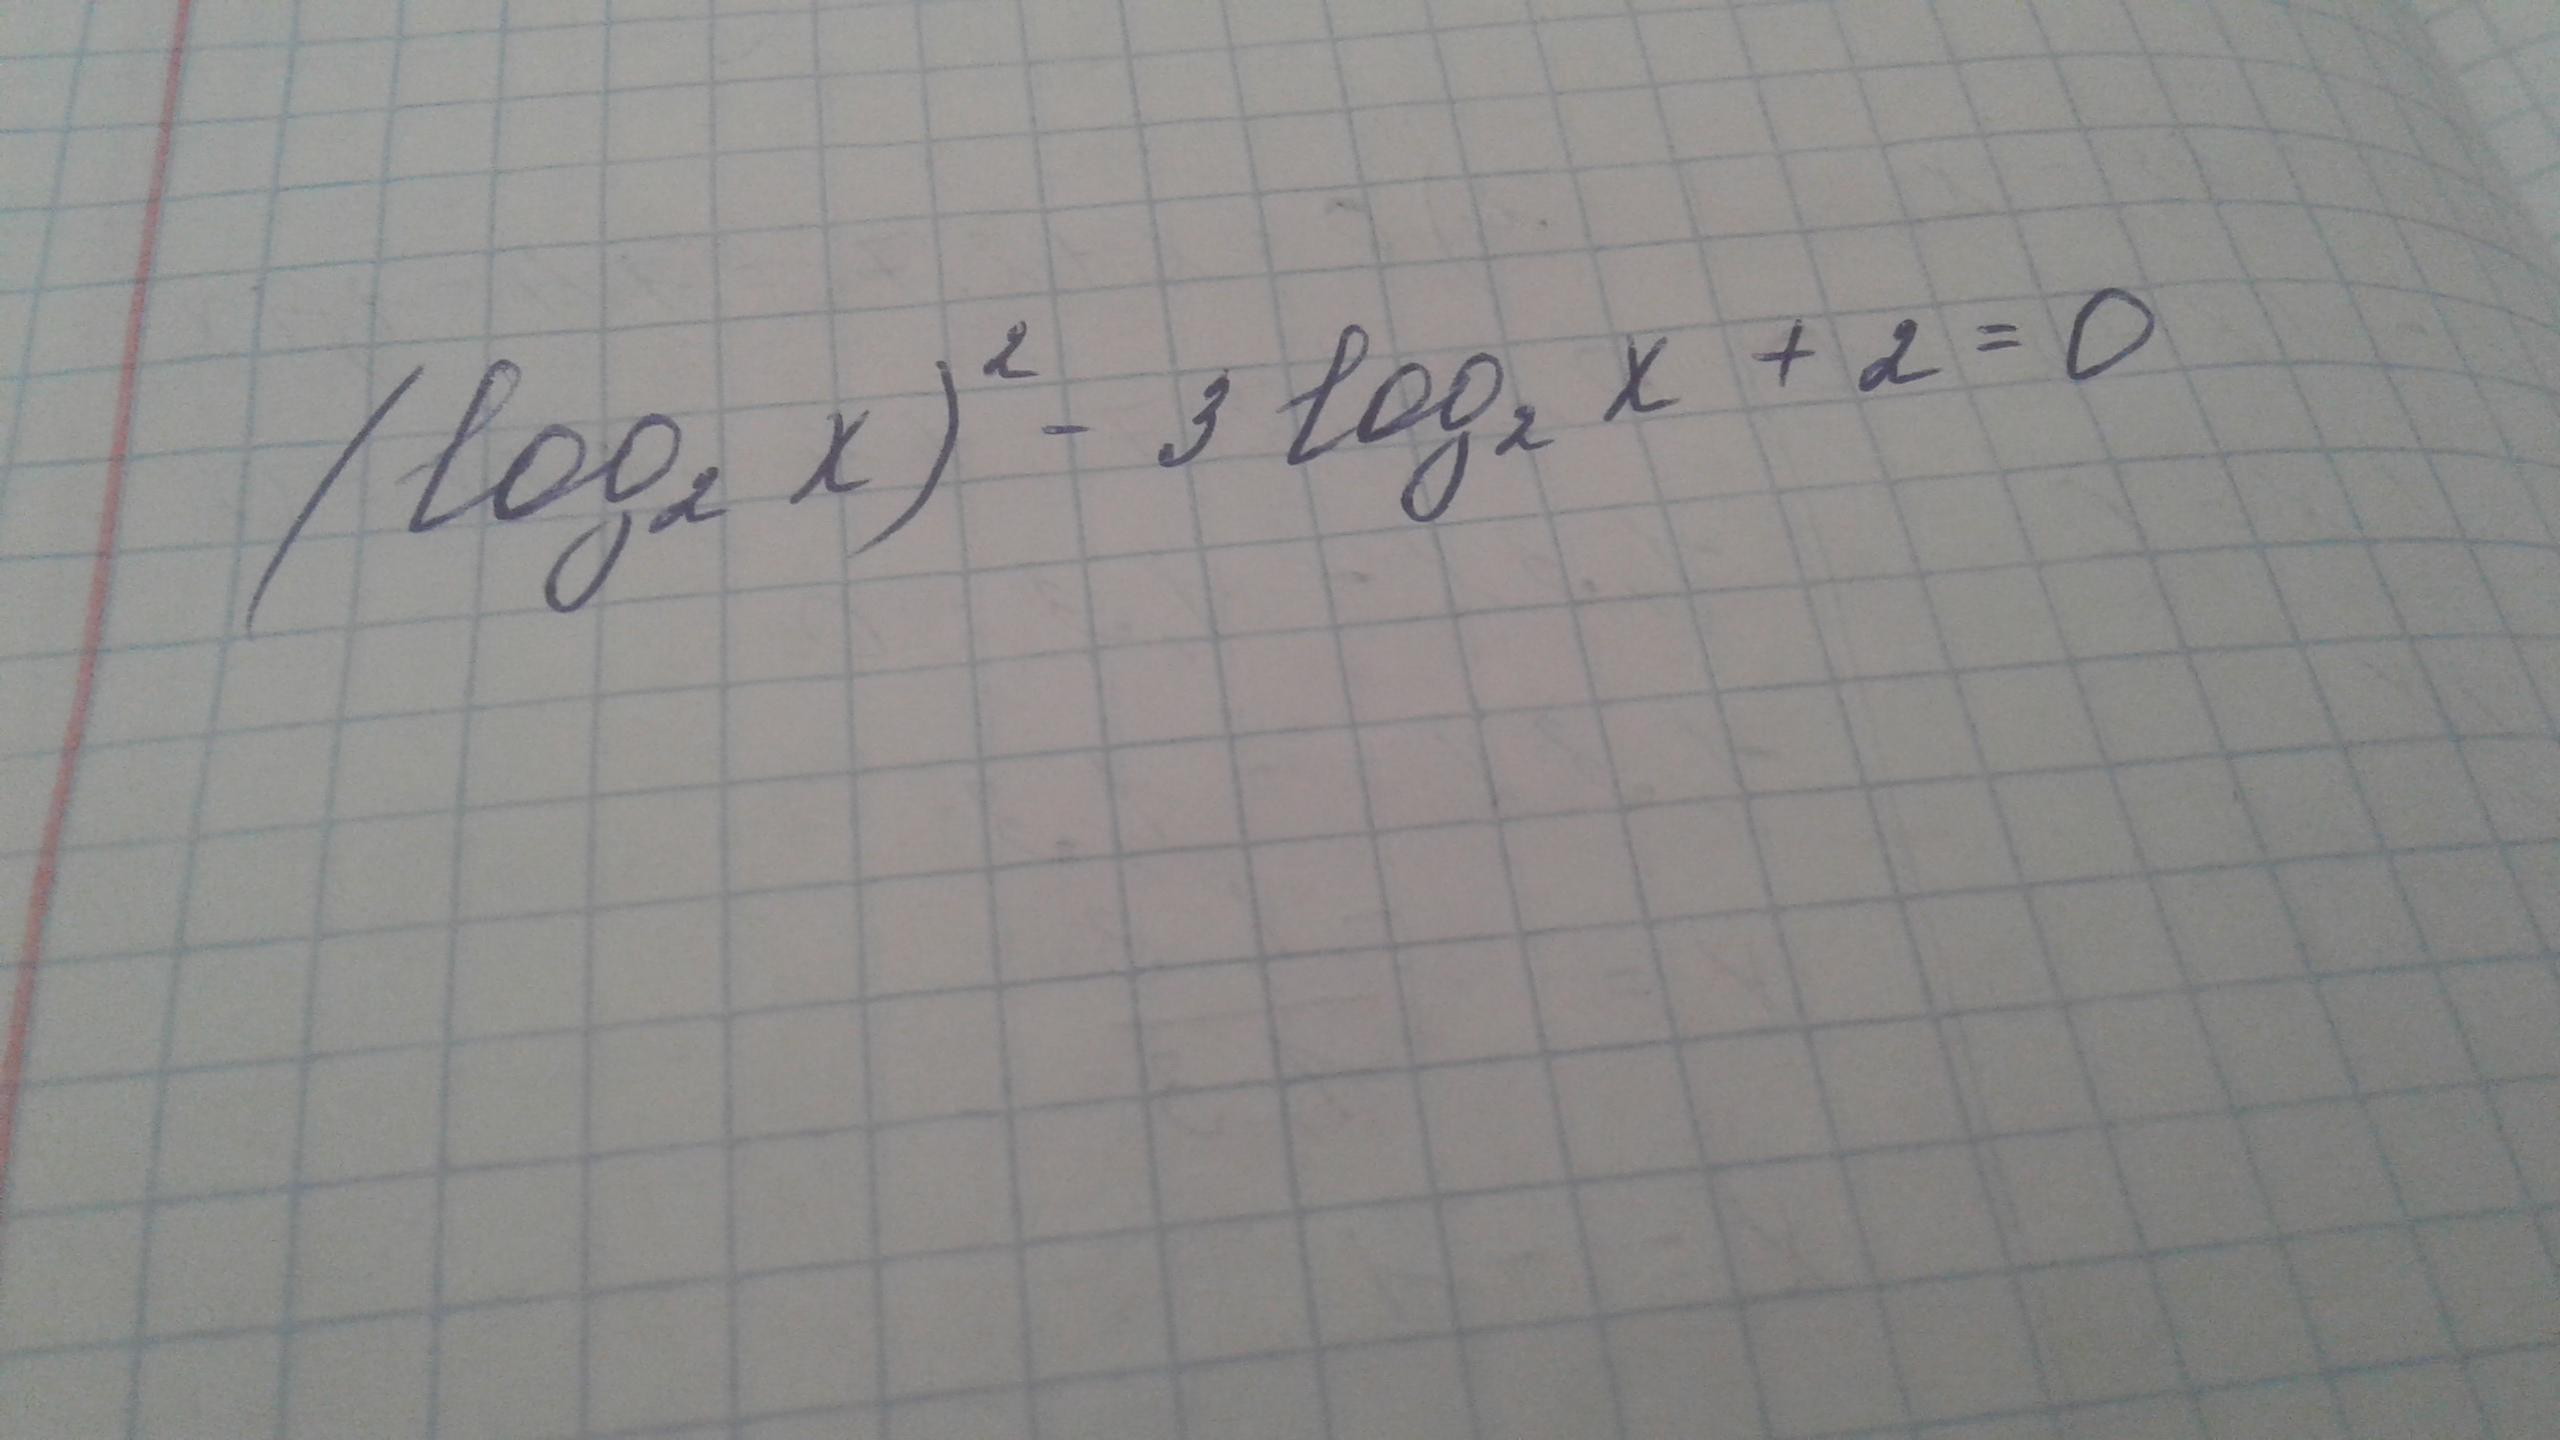 (log₂ x)² - 3 log₂ x + 2 = 0